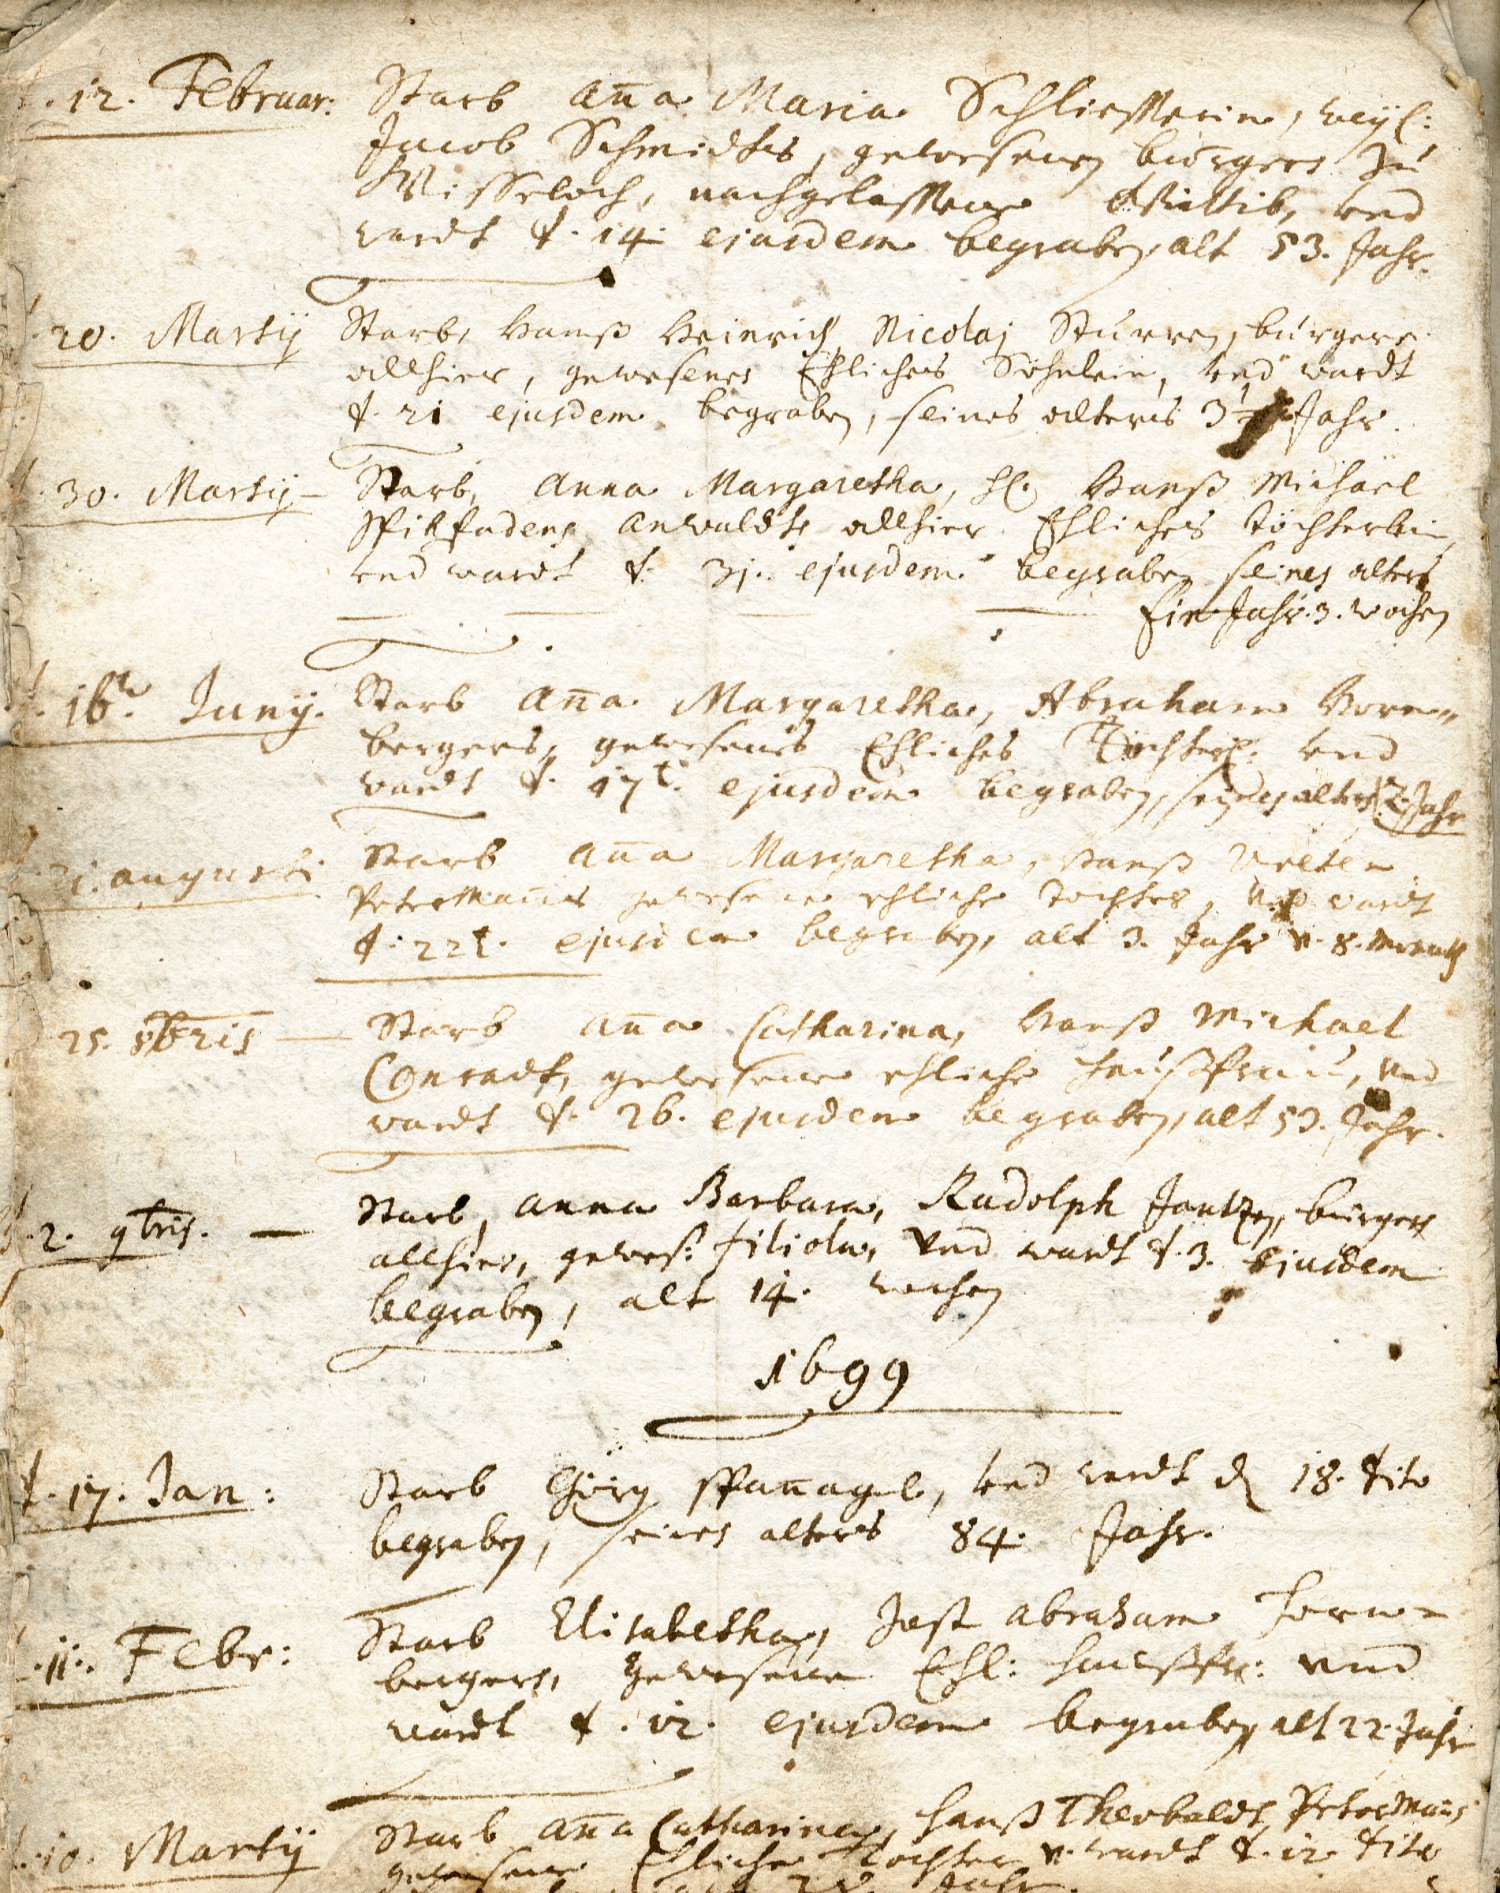 12. Februar: Starb Anna Maria Schliesserin, weyl:
Jacob Schmidts, gewesenen burgers zu
Wisseloch, nachgelassene Wittib, und
wardt d. 14. ejusdem begraben, alt 53. Jahr.
20. Martij Starb, Hanß Heinrich, Nicolaj Sturren, burgers
allhier, gewesenes Ehliches Söhnlein, und wardt
d. 21 ejusdem begraben, seines alters 3 1/2 Jahr.
30. Martij – Starb, Anna Margaretha, H. Hanß Michäel
anwaldts allhier Ehliches töchterlein,
und wardt d. 31. ejusdem begraben seines alters
Ein Jahr. 3. wochen
16t. Junij. Starb Anna Margaretha, Abraham Horn-
bergers, gewesenes Ehliches Töchterl: und
wardt d. 17t. ejusdem begraben, seines alters 2. Jahr
21. augusti Starb Anna Margaretha, Hanß Velten
Petermanns gewesene ehliche tochter, und wardt
d. 22t. ejusdem begraben, alt 3. Jahr u. 8. monath
25. 8bris – Starb Anna Catharina, Hanß Michael
Conradt, gewesene ehliche haußfrau, und
wardt d. 26. ejusdem begraben, alt 53. Jahr.
d. 2. 9bris. – Starb, Anna Barbara, Rudolph Jantzen, burgers
allhier, gewes: filiola, und wardt d. 3. ejusdem
begraben, alt 14. wochen
1699
d. 17. Jan: Starb Görg Spannagel, und wardt d 18. dito
begraben, seines alters 84. Jahr.
11. Febr: Starb Elisabetha, Jost Abraham Horn-
bergers, gewesene Ehl: haußfr: und
wardt d. 12. ejusdem begraben, alt 22. Jahr
10. Martij Starb Anna Catharina, Hanß Theobaldt Petermanns
gewesene Ehliche Tochter u. wardt d. 12. dito
Jahr.